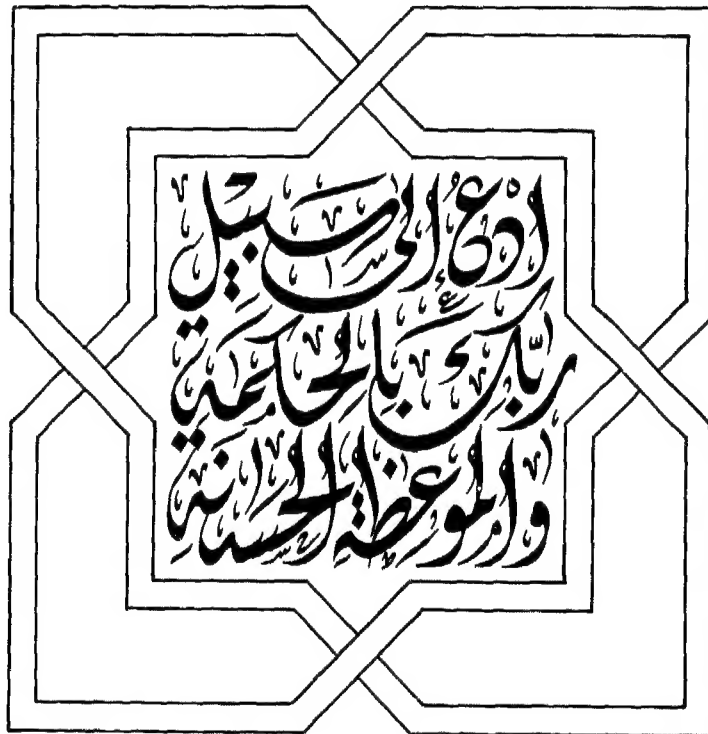 اُدْعُ اِلىٰ سَبيلِ
رَبِّكَ بِالحِكمَةِ
وَالموعِظَةِ الحَسَنَةِ